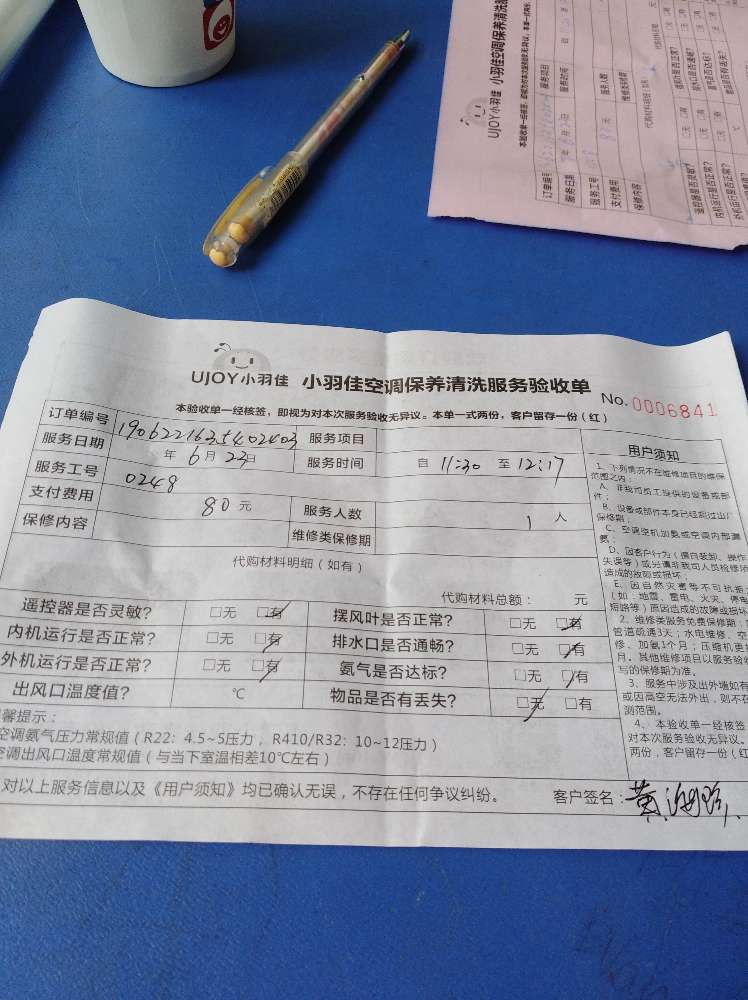 UJOY小羽佳 小羽佳空调保养清洗服务验收单 No. 0006841
本验收单一经核签，即视为对本次服务验收无异议。本单一式两份，客户留存一份（红）
订单编号 190622163402403 服务项目
服务日期 年 6月23日 服务时间 自 11:30 至 12:17
服务工号 0248
支付费用 80元 服务人数 1 人
保修内容 维修类保修期
代购材料明细（如有）
代购材料总额： 元
遥控器是否灵敏？ □无 □有 摆风叶是否正常？ □无 □有
内机运行是否正常？ □无 □有 排水口是否通畅？ □无 □有
外机运行是否正常？ □无 □有 氨气是否达标？ □无 □有
出风口温度值？ ℃ 物品是否有丢失？ □无 □有
馨提示：
空调氨气压力常规值（R22：4.5~5压力， R410/R32：10~12压力）
空调出风口温度常规值（与当下室温相差10℃左右）
对以上服务信息以及《用户须知》均已确认无误，不存在任何争议纠纷。 客户签名：黄
用户须知
1、下列情况不在维修项目的维保
范围之内：
A、非我司员工提供的设备或部
件；
B、设备或部件本身已经超过出厂
保修期；
C、空调空机加氨或空调内部漏
氨；
D、因客户行为（擅自装卸、操作
失误等）或另请非我司人员检修所
造成的故障或损坏；
E、因自然灾害等不可抗拒
（如：地震、雷电、火灾、停电
短路等）原因造成的故障或损坏
2、维修类服务免费保修期：
管道疏通3天；水电维修、空
修、加氨1个月；压缩机更
月。其他维修项目以服务验收
写的保修期为准。
3、服务中涉及出外墙如有
或因高空无法外出，则不在
测范围。
4、本验收单一经核签
对本次服务验收无异议。
两份，客户留存一份（红
UJOY 小羽佳 小羽佳空调保养清洗服
本验收单一经核签，即视为对本次服务验收无异议。本单一式两份，
订单编号 服务项目
服务日期 服务时间
服务工号
支付费用 80元 服务人数
保修内容 维修类保修期
代购材料明细（如有）
遥控器是否灵敏？ □无 □有
内机运行是否正常？ □无 □有
外机运行是否正常？